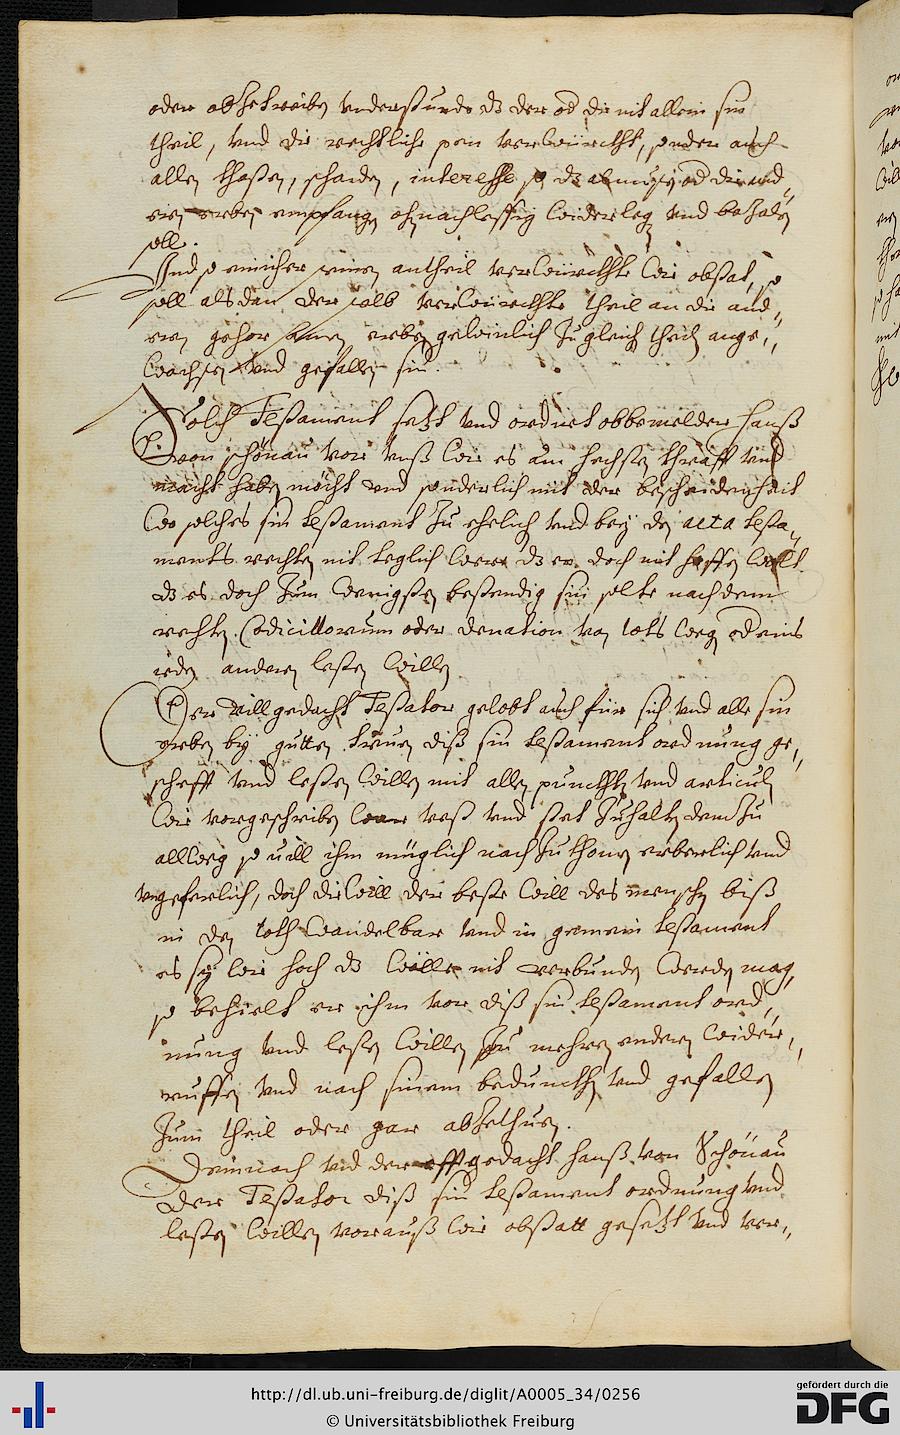 oder abzetreiben understunde dz der od die nit allein sin
theil, und die rechtliche pen verwürckht, sonder auch
allen chosten, schaden, interesse so dz
eren erben empfangen ohnachlessig widerleg und bezalen
soll.
Und so einicher sinen antheil verwürckhte wie obstat, so
soll als dan der selb verwürckhte theil an die and„
ern gehorsamen erben gewonlich zu gleich theilen ange„
wachsen und gefallen sin.
Solch Testament setzt und ordnet obbemelder Hanß
von Schönau vor unß wie es am hechsten krafft und
macht haben möcht und sonderlich mit der bescheidenheit
wo solches sin testament zu ehelich und bey den testa„
ments rechten nit teglich were dz er doch nit hoffen wolt
dz es doch zum wenigsten bestendig sin solte nach dem
rechten Codicillorum oder donation von tots weg od eins
ieden anderen lesten willen
Der villgedacht Testator gelobt auch für sich und alle sin
erben by gutten treuen diß sin testament ordnung ge„
schefft und lesten willen mit allen punckhten und articulen
wie vorgeschriben war vest und stet zuhalten dem zu
allweg so vill ihm müglich nach zu thonn erberlich und
ungeferlich, doch diewill der leste will des menschen biß
in den toth wandelbar und in gemein testament
es sy wie hoch dz wölle nit verbunden werden mag,
so behielt er ihm vor diß sin testament ord„
nung und lesten willen zu mehren enderen wider„
ruffen und nach sinem beduncken und gefallen
zum theil oder gar abzethuen.
Demnach und der offtgedacht Hanß von Schönau
der Testator diß sin testament ordnung und
lesten willen vorauß wie obstatt gesetzt und ver„
http://dl.ub.uni-freiburg.de/diglit/A0005_34/0256
© Universitätsbibliothek Freiburg
gefördert durch die
DFG